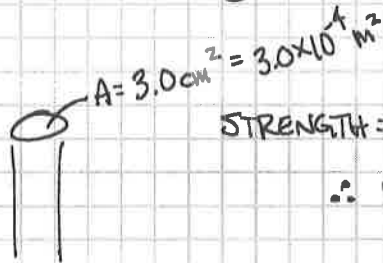 A = 3.0 cm² = 3.0×10⁻⁴ m²
STRENGTH =
∴